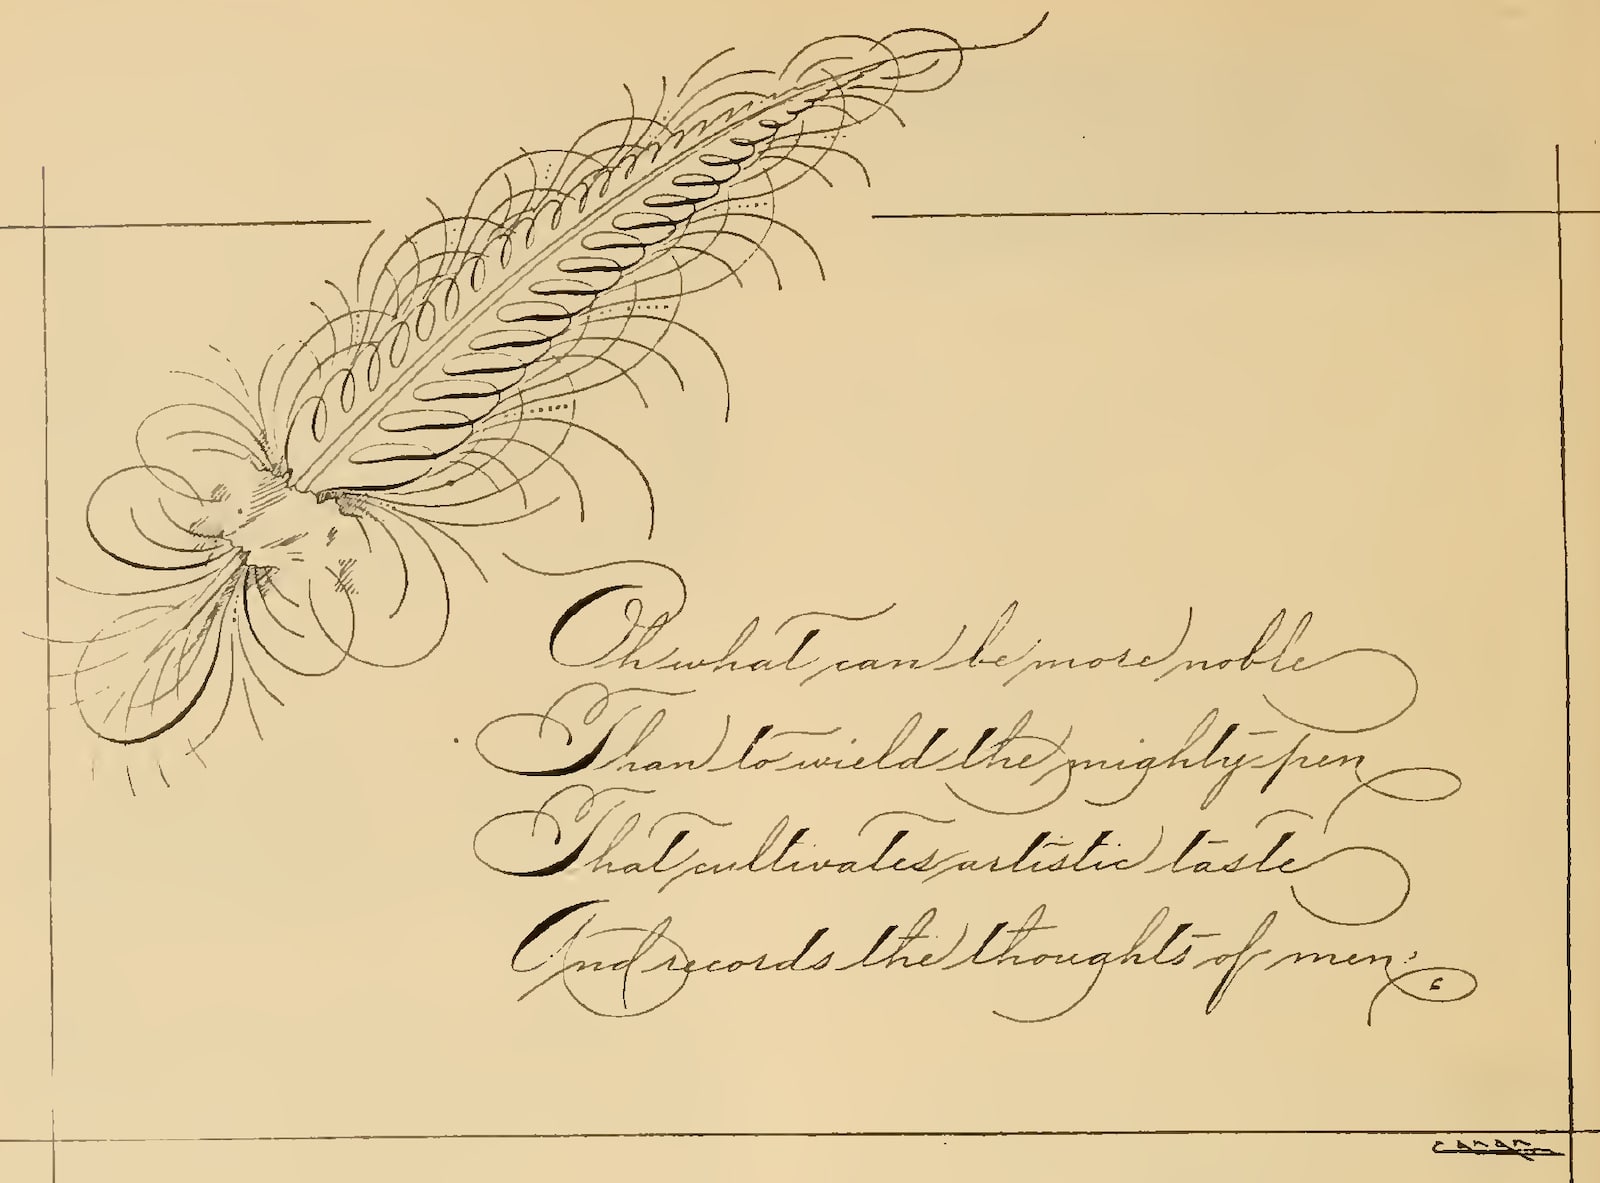 Oh what can be more noble
Than to wield the mighty pen
That cultivates artistic taste
And records the thoughts of men.